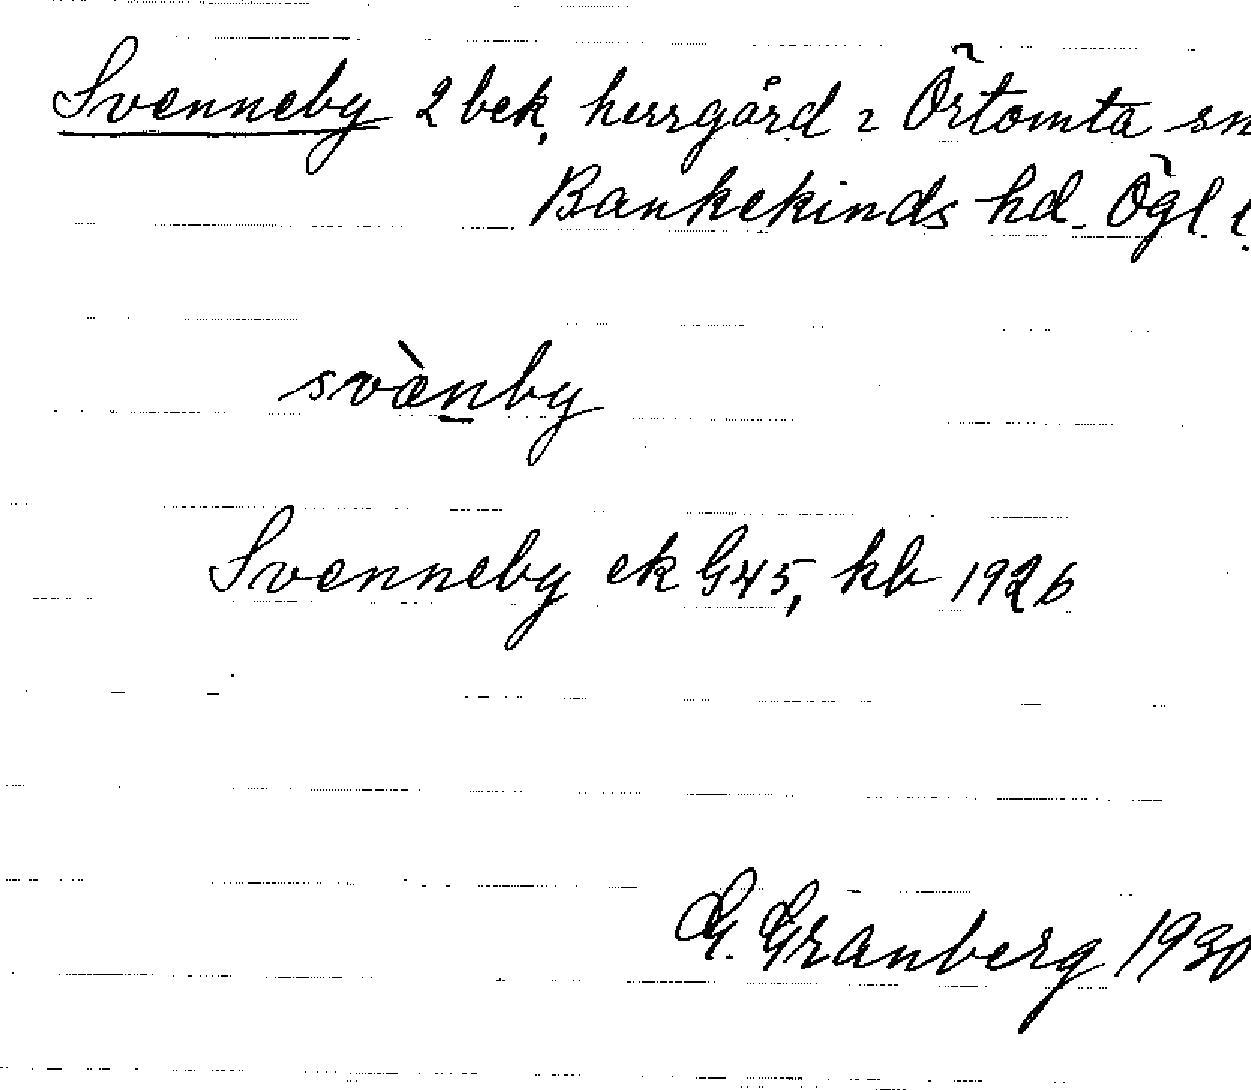 Svenneby 2 bek, herrgård i Örtomta sn
Bankekinds hd Ögl l
svànby
Svenneby ek G45, kb 1926
G. Granberg 1930